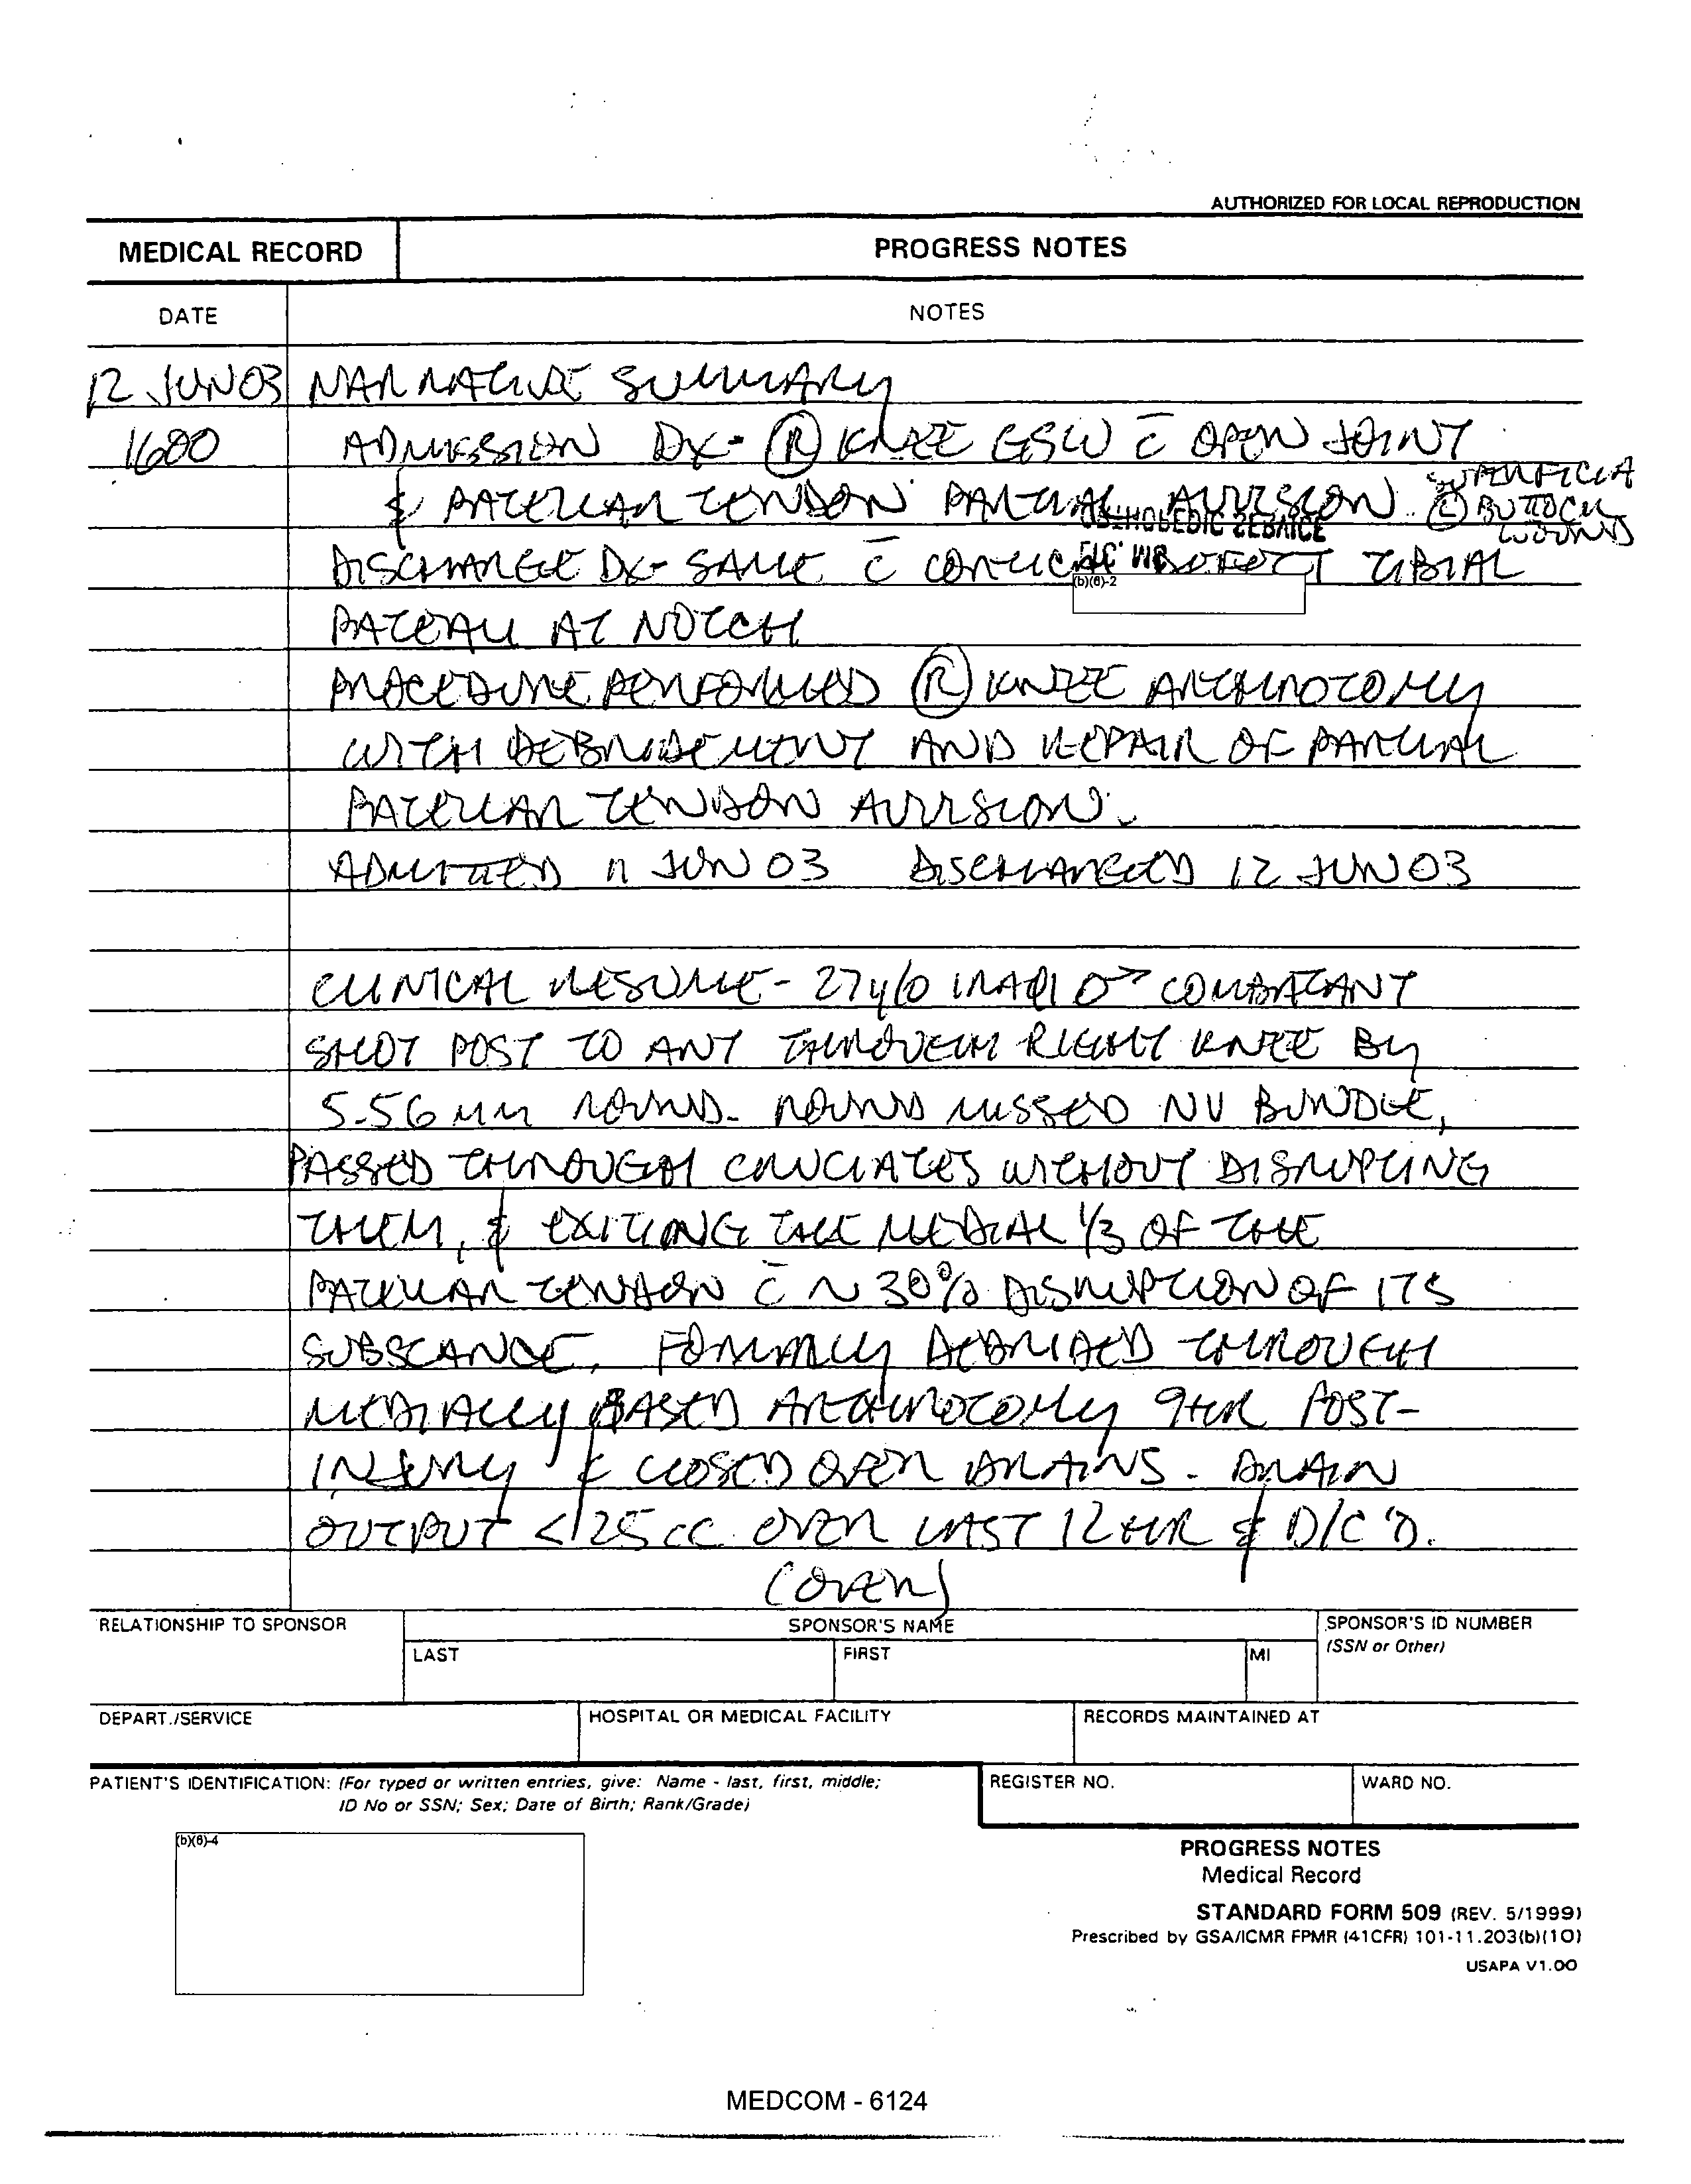 AUTHORIZED FOR LOCAL REPRODUCTION
MEDICAL RECORD
PROGRESS NOTES
DATE
NOTES
12 JUN 03 NARRATIVE SUMMARY
1600 ADMISSION DX- Ⓡ KNEE GSW c̄ OPEN JOINT
& PATELLAR TENDON PARTIAL AVULSION. SUPERFICIA
BUTTOCK
WOUNDS
ORTHOPEDIC SERVICE
DISCHARGE DX- SAME c̄ DEFECT TIBIAL
(b)(6)-2
PLATEAU AT NOTCH
PROCEDURE PERFORMED Ⓡ KNEE ARTHROTOMY
WITH DEBRIDEMENT AND REPAIR OF PARTIAL
PATELLAR TENDON AVULSION.
ADMITTED 11 JUN 03 DISCHARGED 12 JUN 03
CLINICAL RESUME - 27 y/o IRAQI ♂ COMBATANT
SHOT POST TO ANT THROUGH RIGHT KNEE BY
5.56 MM ROUND. ROUND MISSED NV BUNDLE,
PASSED THROUGH CRUCIATES WITHOUT DISRUPTING
THEM, & EXITING THE MEDIAL 1/3 OF THE
PATELLAR TENDON c̄ ~ 30% DISRUPTION OF ITS
SUBSTANCE. FORMALLY DEBRIDED THROUGH
MEDIALLY BASED ARTHROTOMY 9HR POST-
INJURY & CLOSED OVER DRAINS. DRAIN
OUTPUT <125 CC OVER LAST 12 HR & D/C'D.
(OVER)
RELATIONSHIP TO SPONSOR
SPONSOR'S NAME
SPONSOR'S ID NUMBER
(SSN or Other)
LAST
FIRST
MI
DEPART./SERVICE
HOSPITAL OR MEDICAL FACILITY
RECORDS MAINTAINED AT
PATIENT'S IDENTIFICATION: (For typed or written entries, give: Name - last, first, middle;
ID No or SSN; Sex; Date of Birth; Rank/Grade)
REGISTER NO.
WARD NO.
(b)(6)-4
PROGRESS NOTES
Medical Record
STANDARD FORM 509 (REV. 5/1999)
Prescribed by GSA/ICMR FPMR (41CFR) 101-11.203(b)(10)
USAPA V1.00
MEDCOM - 6124